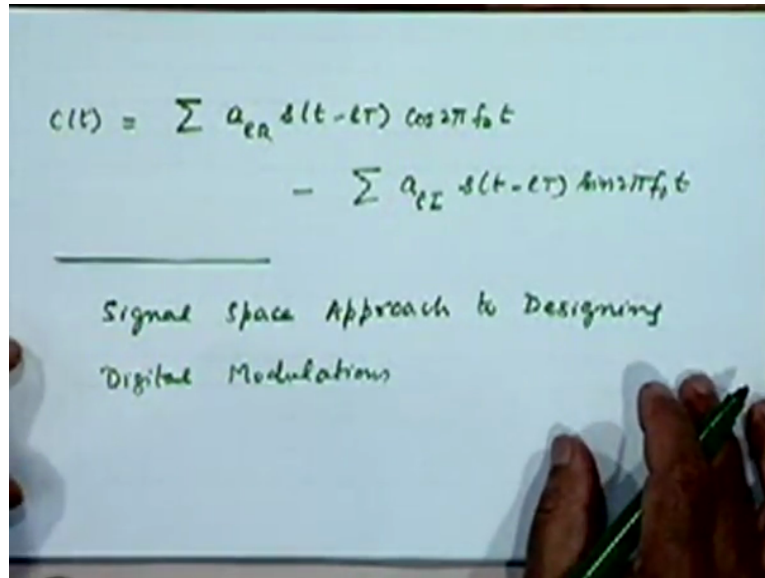 c(t) = Σ a_{ℓR} s(t-ℓT) cos 2π f₀ t
- Σ a_{ℓI} s(t-ℓT) sin 2π f₀ t
Signal Space Approach to Designing
Digital Modulations